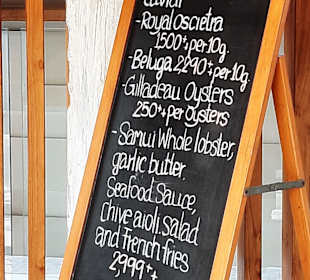 Caviar
-Royal oscietra
1500++ per 10g.
-Beluga 2,290++ per 10g.
-Gilladeau Oysters
250++ per Oysters
-Samui Whole lobster,
garlic butter,
Seafood Sauce,
chive aioli, salad
and French fries
2,999++